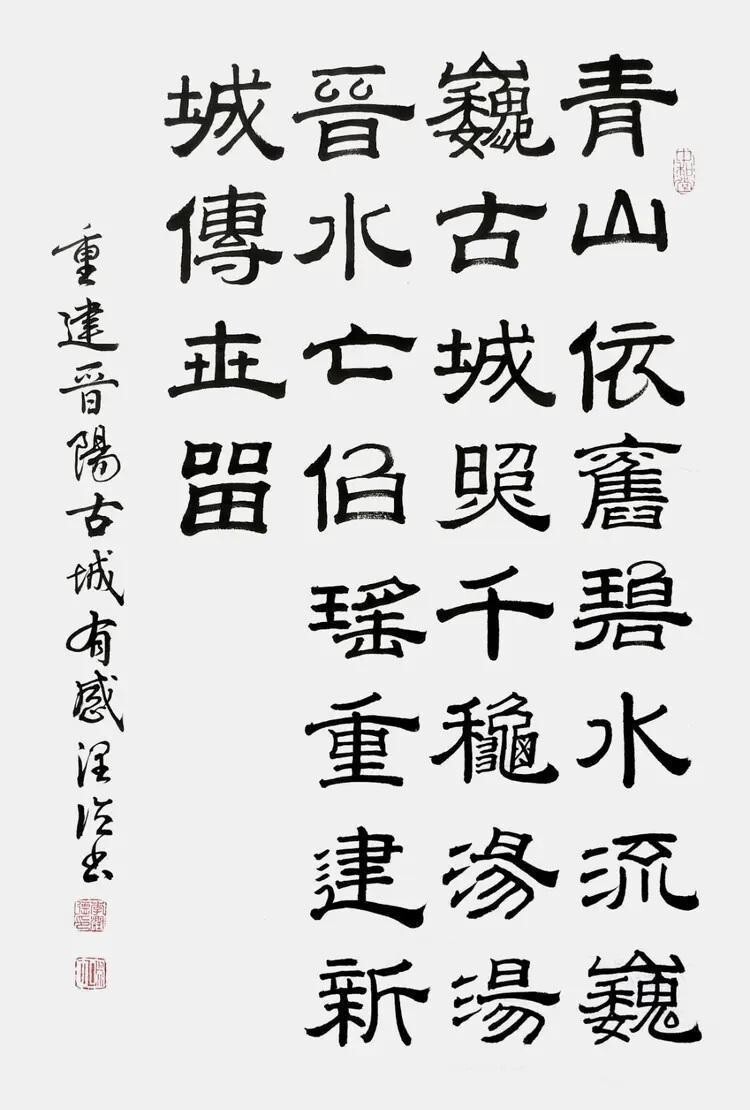 中和堂
青山依舊碧水流巍
巍古城照千龝湯湯
晉水亡伯瑤重建新
城傳世留
重建晉陽古城有感書